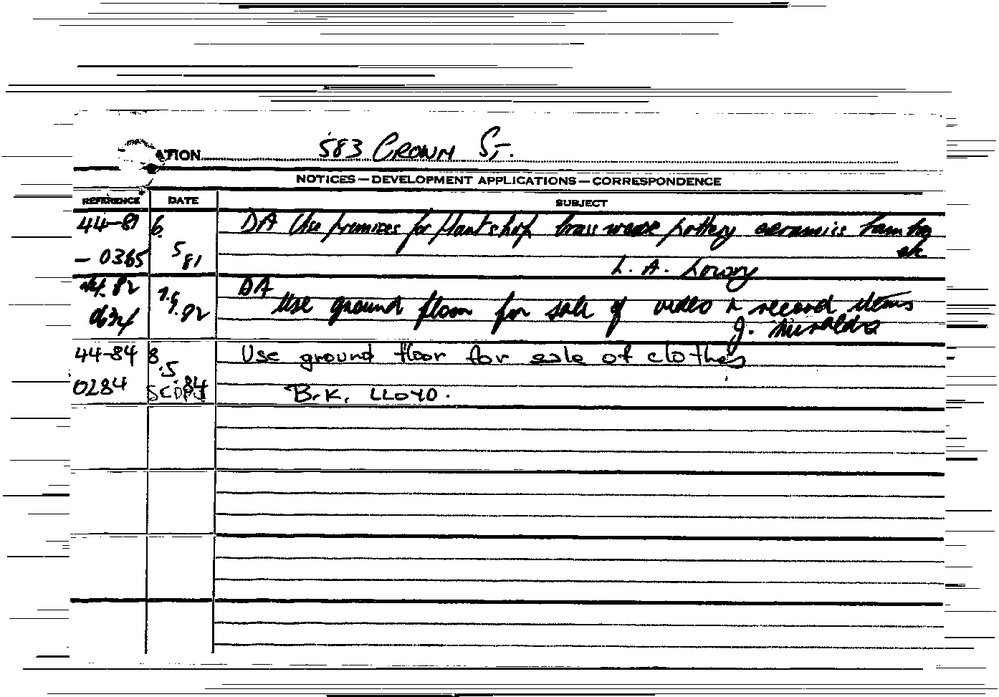 ATION 583 CROWN ST.
NOTICES — DEVELOPMENT APPLICATIONS — CORRESPONDENCE
REFERENCE DATE SUBJECT
44-81 6. DA Use premises for plant shop brass pottery ceramics
- 0365 5 81 L. A. Lowry
44.82 7.9.82 DA Use ground floor for sale of video & record items
0634 J.
44-84 8 Use ground floor for sale of clothes
0284 .5 .84 B.K. LLOYD.